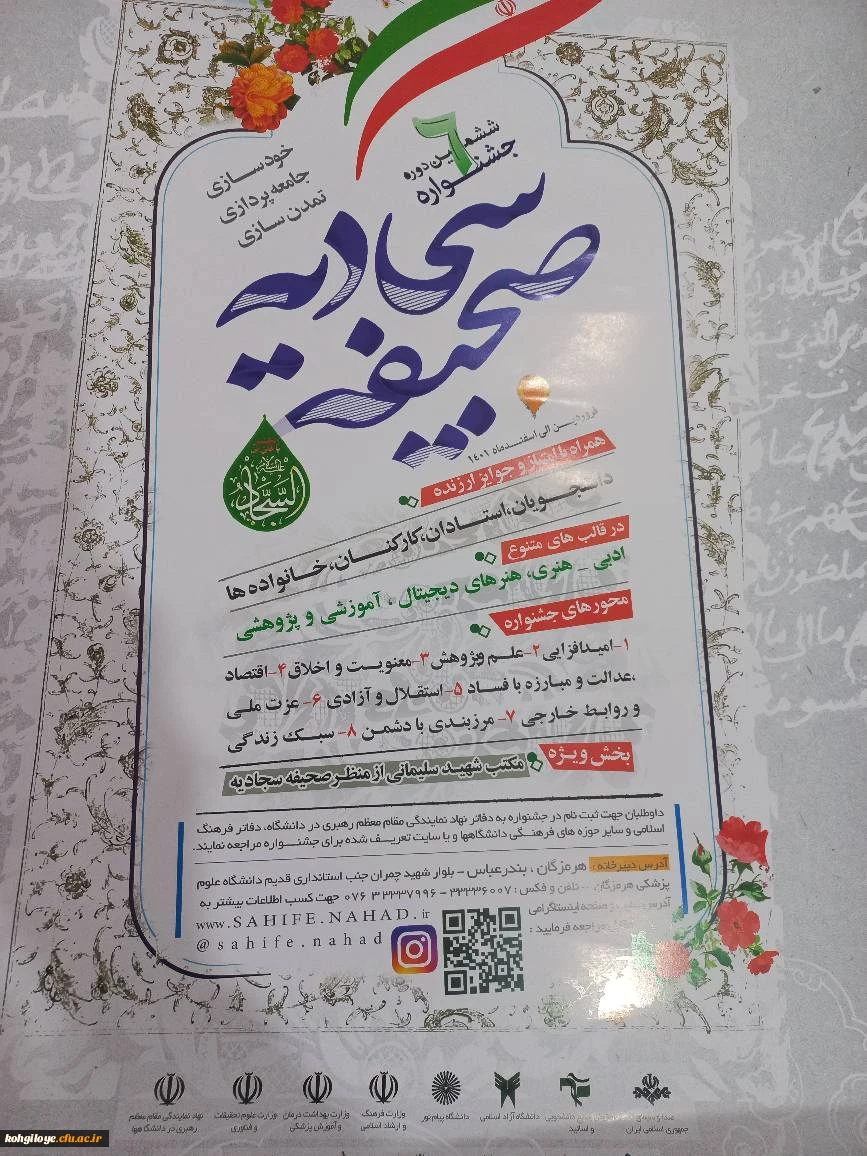 ششمین دوره
۶
جشنواره
خودسازی
جامعه پردازی
تمدن سازی
صحیفه
سجادیه
السجاد
علیه السلام
فروردین الی اسفندماه ۱۴۰۱
همراه با امتیاز و جوایز ارزنده
دانشجویان، استادان، کارکنان، خانواده ها
در قالب های متنوع
ادبی - هنری، هنرهای دیجیتال، آموزشی و پژوهشی
محورهای جشنواره
۱-امیدافزایی ۲-علم وپژوهش ۳-معنویت و اخلاق ۴-اقتصاد
،عدالت و مبارزه با فساد ۵- استقلال و آزادی ۶- عزت ملی
و روابط خارجی ۷- مرزبندی با دشمن ۸- سبک زندگی
بخش ویژه
مکتب شهید سلیمانی از منظر صحیفه سجادیه
داوطلبان جهت ثبت نام در جشنواره به دفاتر نهاد نمایندگی مقام معظم رهبری در دانشگاه، دفاتر فرهنگ
اسلامی و سایر حوزه های فرهنگی دانشگاهها و یا سایت تعریف شده برای جشنواره مراجعه نمایند.
آدرس دبیرخانه: هرمزگان، بندرعباس - بلوار شهید چمران جنب استانداری قدیم دانشگاه علوم
پزشکی هرمزگان تلفن و فکس: ۳۳۳۳۶۰۰۷ - ۳۳۳۳۷۹۹۶ ۰۷۶ جهت کسب اطلاعات بیشتر به
آدرس سایت و صفحه اینستاگرامی
www.SAHIFE.NAHAD.ir
مراجعه فرمایید:
@sahife.nahad
صدا و سیمای
جمهوری اسلامی ایران
بسیج دانشجویی
و اساتید
دانشگاه آزاد اسلامی
دانشگاه پیام نور
وزارت فرهنگ
و ارشاد اسلامی
وزارت بهداشت درمان
و آموزش پزشکی
وزارت علوم تحقیقات
و فناوری
نهاد نمایندگی مقام معظم
رهبری در دانشگاه ها
kohgiloye.cfu.ac.ir